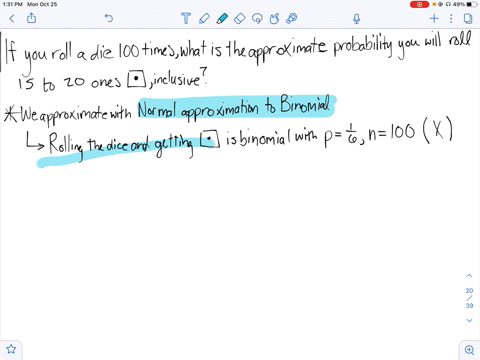 1:31 PM Mon Oct 25
49%
If you roll a die 100 times, what is the approximate probability you will roll
15 to 20 ones ⚀, inclusive?
* We approximate with Normal approximation to Binomial
↳ Rolling the dice and getting ⚀ is binomial with p = 1/6, n = 100 (X)
20
/
39